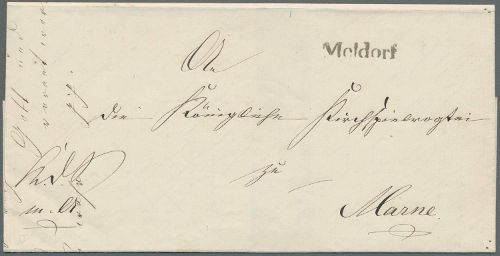 Meldorf
An
die Königliche Kirchspielvogtei
zu
Marne.